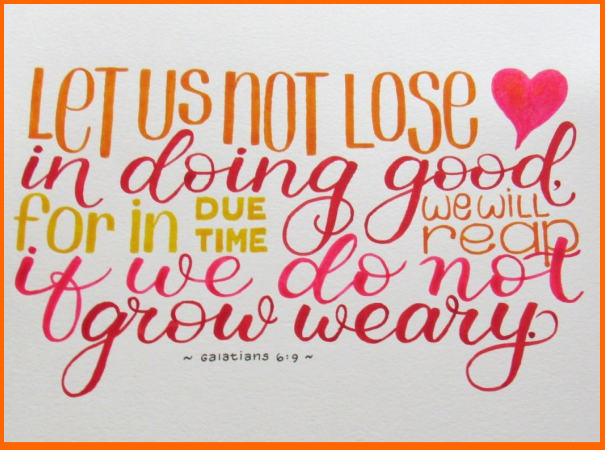 LET US NOT LOSE
in doing good,
for in DUE TIME we will reap
if we do not
grow weary.
~ Galatians 6:9 ~